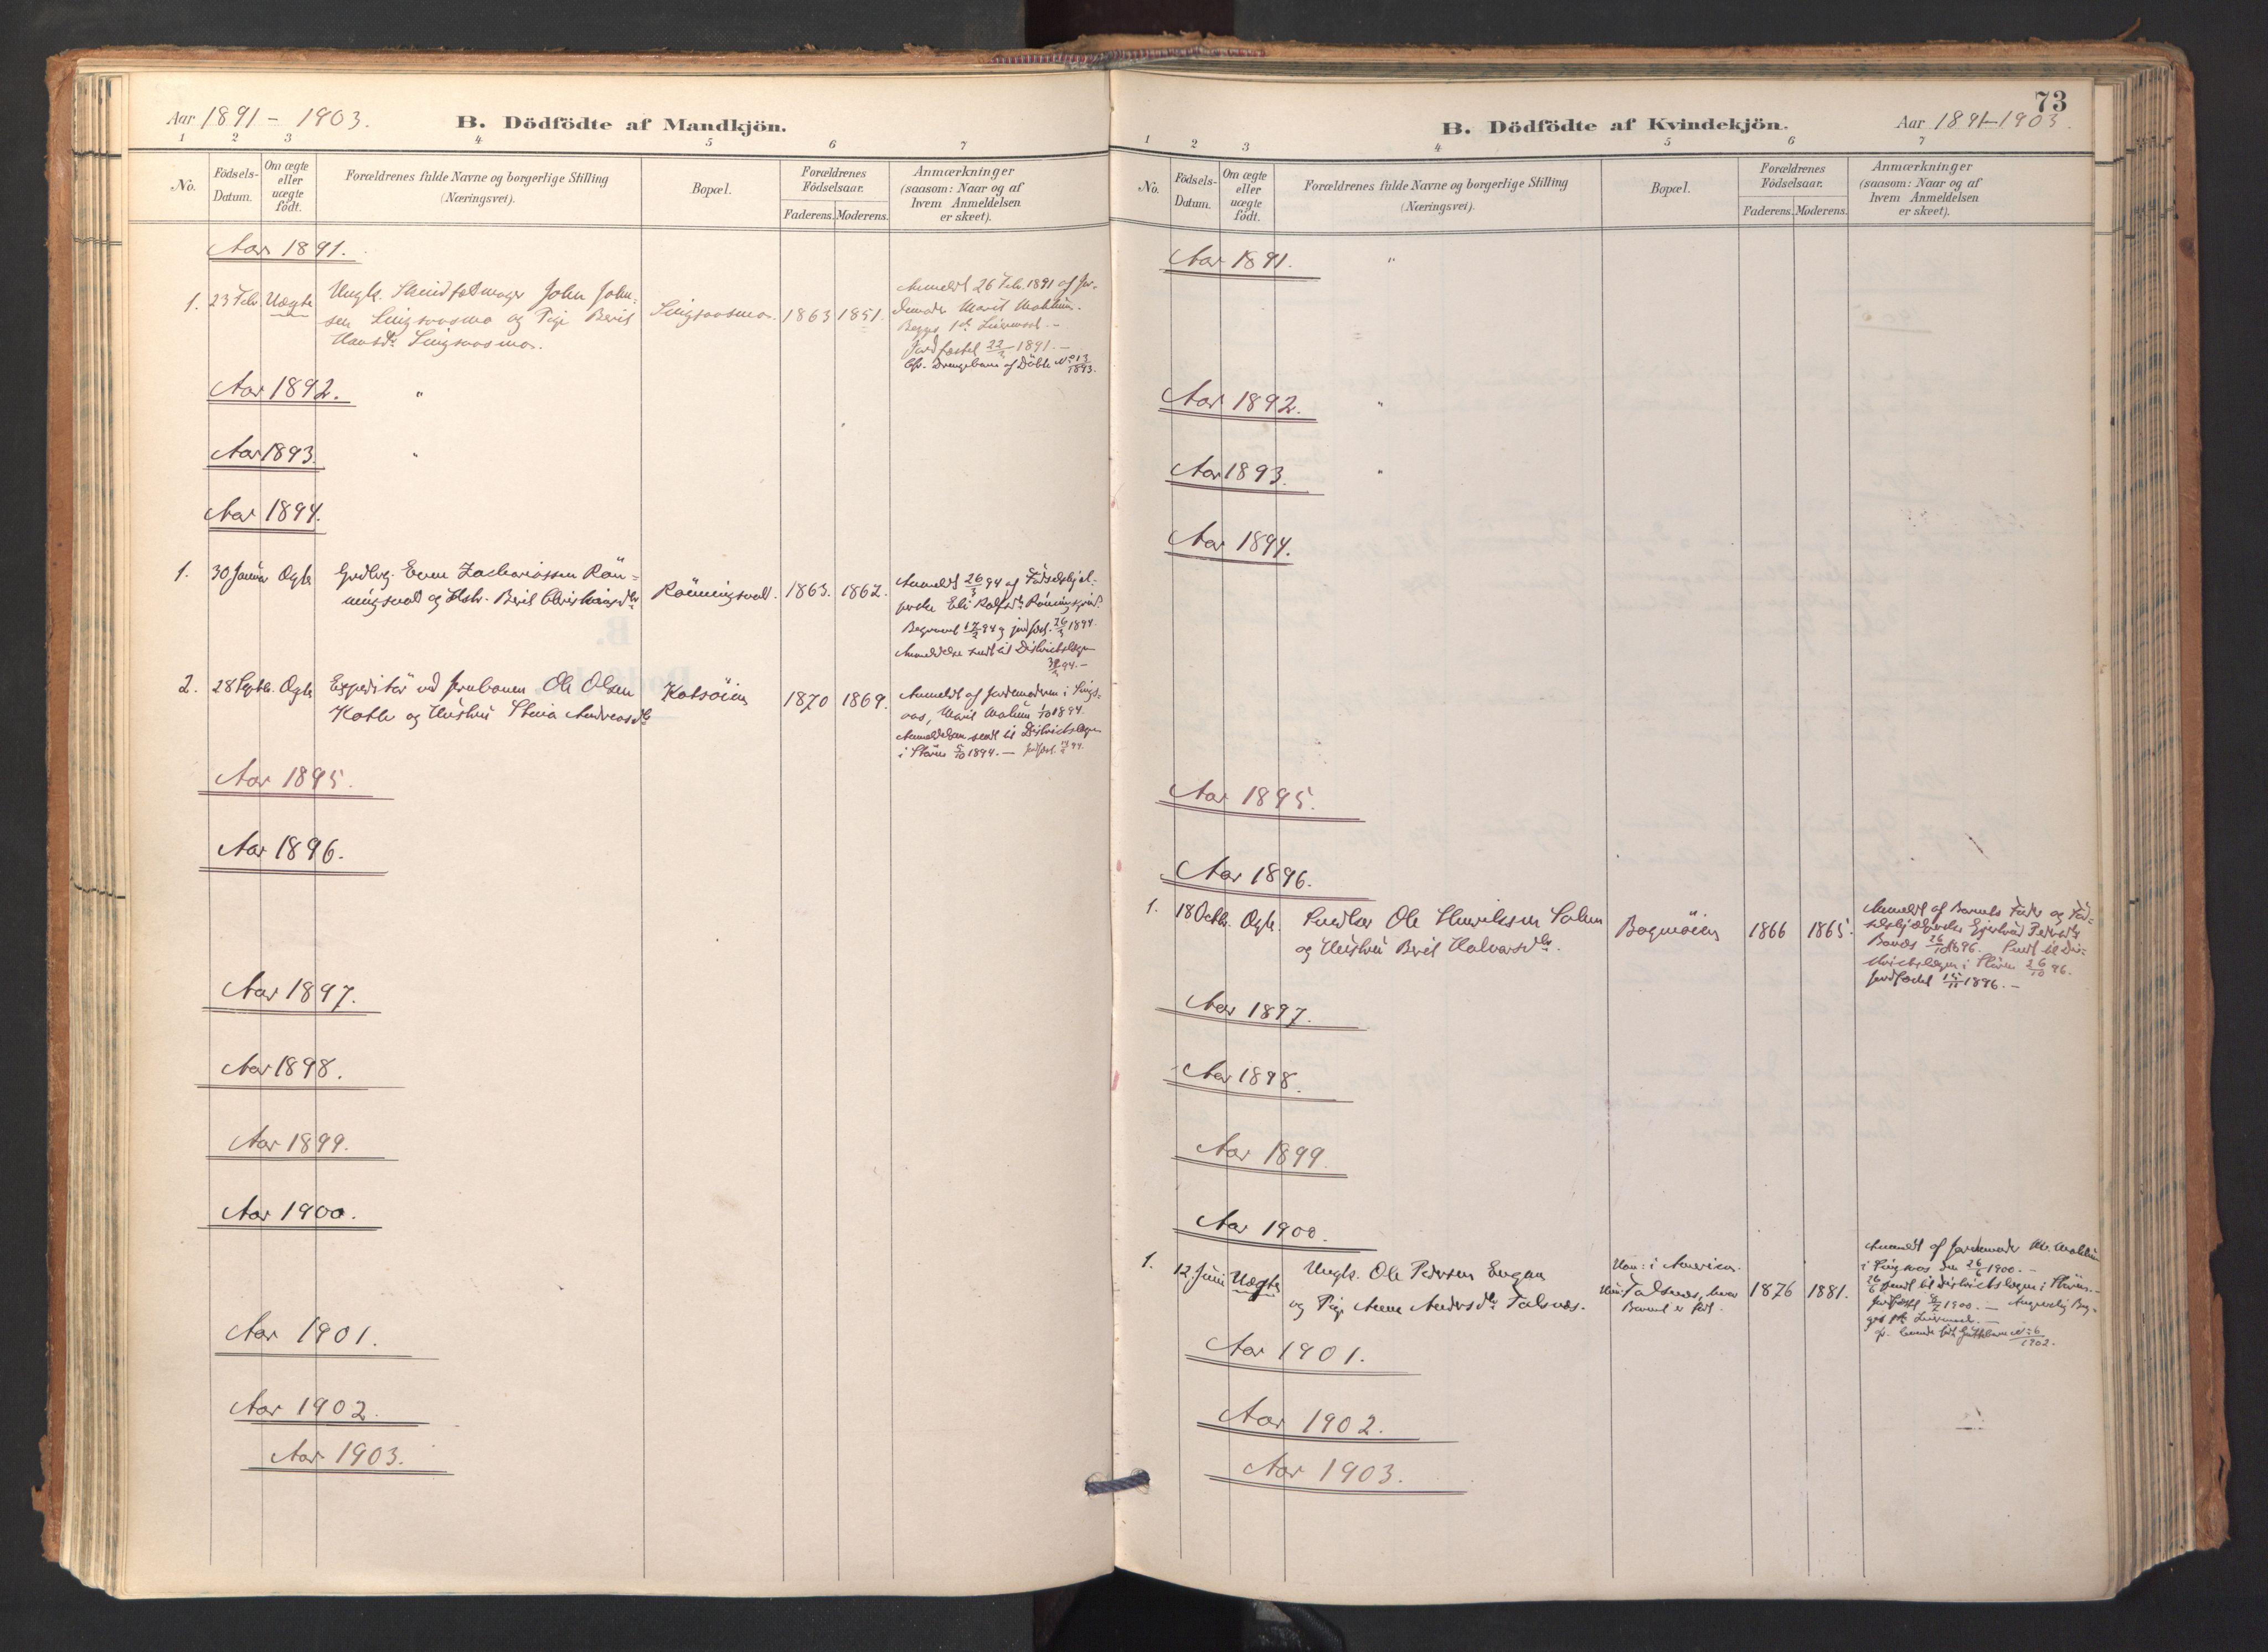 Aar 1891 - 1903.
B. Dödfödte af Mandkjön.
1 2 3 4 5 6 7
No.
Födsels-Datum.
Om ægte eller uægte födt.
Forældrenes fulde Navne og borgerlige Stilling (Næringsvei).
Bopæl.
Forældrenes Födselsaar.
Faderens. Moderens.
Anmærkninger (saasom: Naar og af hvem Anmeldelsen er skeet).
Aar 1891.
1. 23 Feb. Uægte Ungk. John John-
sen Singsaasmo og Pige Berit
Hansdr. Singsaasmo.
Singsaasmo. 1863 1851.
Anmeldt 26 Feb. 1891 af Jor-
demoder Marit Moklun.
Begges 1ste Leiermaal. -
Jordfæstet 22/3 1891. -
Cfr. Drengebarn af Døbte No 13/1893.
Aar 1892. "
Aar 1893. "
Aar 1894.
1. 30 Januar Ægte Grdbrg. Even Zachariassen Rön-
ningsvold og Hstr. Berit Christiansdtr
Rönningsvold. 1863. 1862.
Anmeldt 26/3 94 af Födselshjæl-
persken Eli
Begravet 17/2 94 og jordfæst. 26/3 1894.
Anmeldelse sendt til Distriktslægen
2. 28 Septb. Ægte Expeditör ved Jernbanen Ole Olsen
Kotte og Hustru Andreasdtr
Kotsöien 1870 1869.
Anmeldt af Jordemoderen i Sings-
aas, Marit Moklun 1/10 1894.
Anmeldelsen sendt til Distriktslægen
i Stören 5/10 1894. -
Aar 1895.
Aar 1896.
Aar 1897.
Aar 1898.
Aar 1899.
Aar 1900.
Aar 1901.
Aar 1902.
Aar 1903.
73
B. Dödfödte af Kvindekjön.
Aar 1891-1903.
1 2 3 4 5 6 7
No.
Födsels-Datum.
Om ægte eller uægte födt.
Forældrenes fulde Navne og borgerlige Stilling (Næringsvei).
Bopæl.
Forældrenes Födselsaar.
Faderens. Moderens.
Anmærkninger (saasom: Naar og af hvem Anmeldelsen er skeet).
Aar 1891. "
Aar 1892. "
Aar 1893. "
Aar 1894.
Aar 1895.
Aar 1896.
1. 18 Octbr. Ægte. Ole Henriksen
og Hustru Berit Halvorsdtr.
Bogenöien 1866 1865.
Anmeldt af Barnets Fader og Föd-
selshjælperske
26/10 1896. Sendt til Di-
striktslægen i Stören 26/10 96.
Jordfæstet 15/11 1896. -
Aar 1897.
Aar 1898.
Aar 1899.
Aar 1900.
1. 12 Juni Uægte Ungk. Ole Pedersen Engen
og Pige Anne Andersdtr. Talsnes.
Han: i America.
Hun: Talsnes, hvor
Barnet er födt.
1876 1881.
Anmeldt af Jordemoder M. Moklun
i Singsaas den 26/6 1900. -
26/6 sendt til Distriktslægen i Stören. -
Jordfæstet 1900. - Angivelig Beg-
ges 1ste Leiermaal. -
No 6/1902.
Aar 1901.
Aar 1902.
Aar 1903.